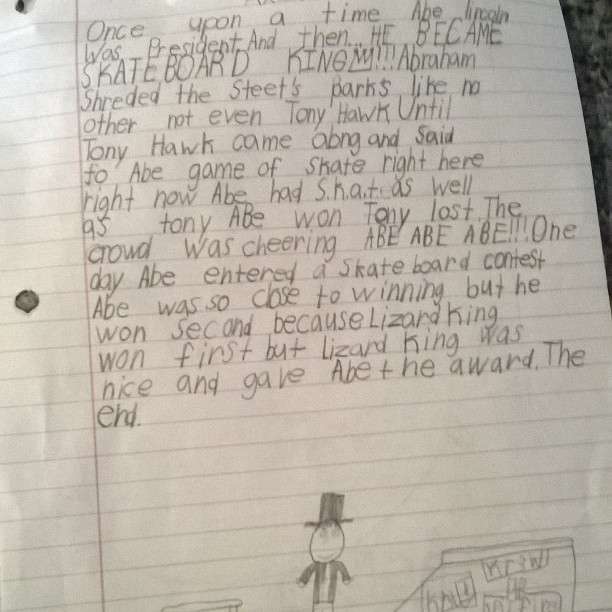 Once upon a time Abe lincoln
Was President And then... HE BECAME
SKATEBOARD KING!!!! Abraham
Shreded the Steet's parks like no
other not even Tony Hawk Until
Tony Hawk came along and said
to Abe game of skate right here
right now Abe had S.k.a.t. as well
as tony ABe won Tony lost. The
crowd was cheering ABE ABE ABE!!! One
day Abe entered a skateboard contest
Abe was so close to winning but he
won second because Lizard King
won first but lizard King was
nice and gave Abe the award. The
end.